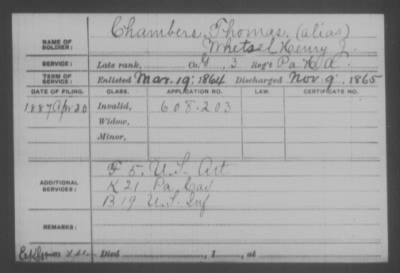 Chambers, Thomas, (alias)
NAME OF SOLDIER: Whetsel Henry J.
SERVICE: Late rank, Co. G, 3 Reg't Pa H A.
TERM OF SERVICE: Enlisted Mar. 19, 1864 Discharged Nov. 9, 1865
DATE OF FILING. CLASS. APPLICATION NO. LAW. CERTIFICATE NO.
1887 Apr 20 Invalid, 608.203
Widow,
Minor,
F 5, U.S. Art
ADDITIONAL SERVICES: K 21 Pa Cav
B 19 U.S. Inf
REMARKS:
Died , 1 , at